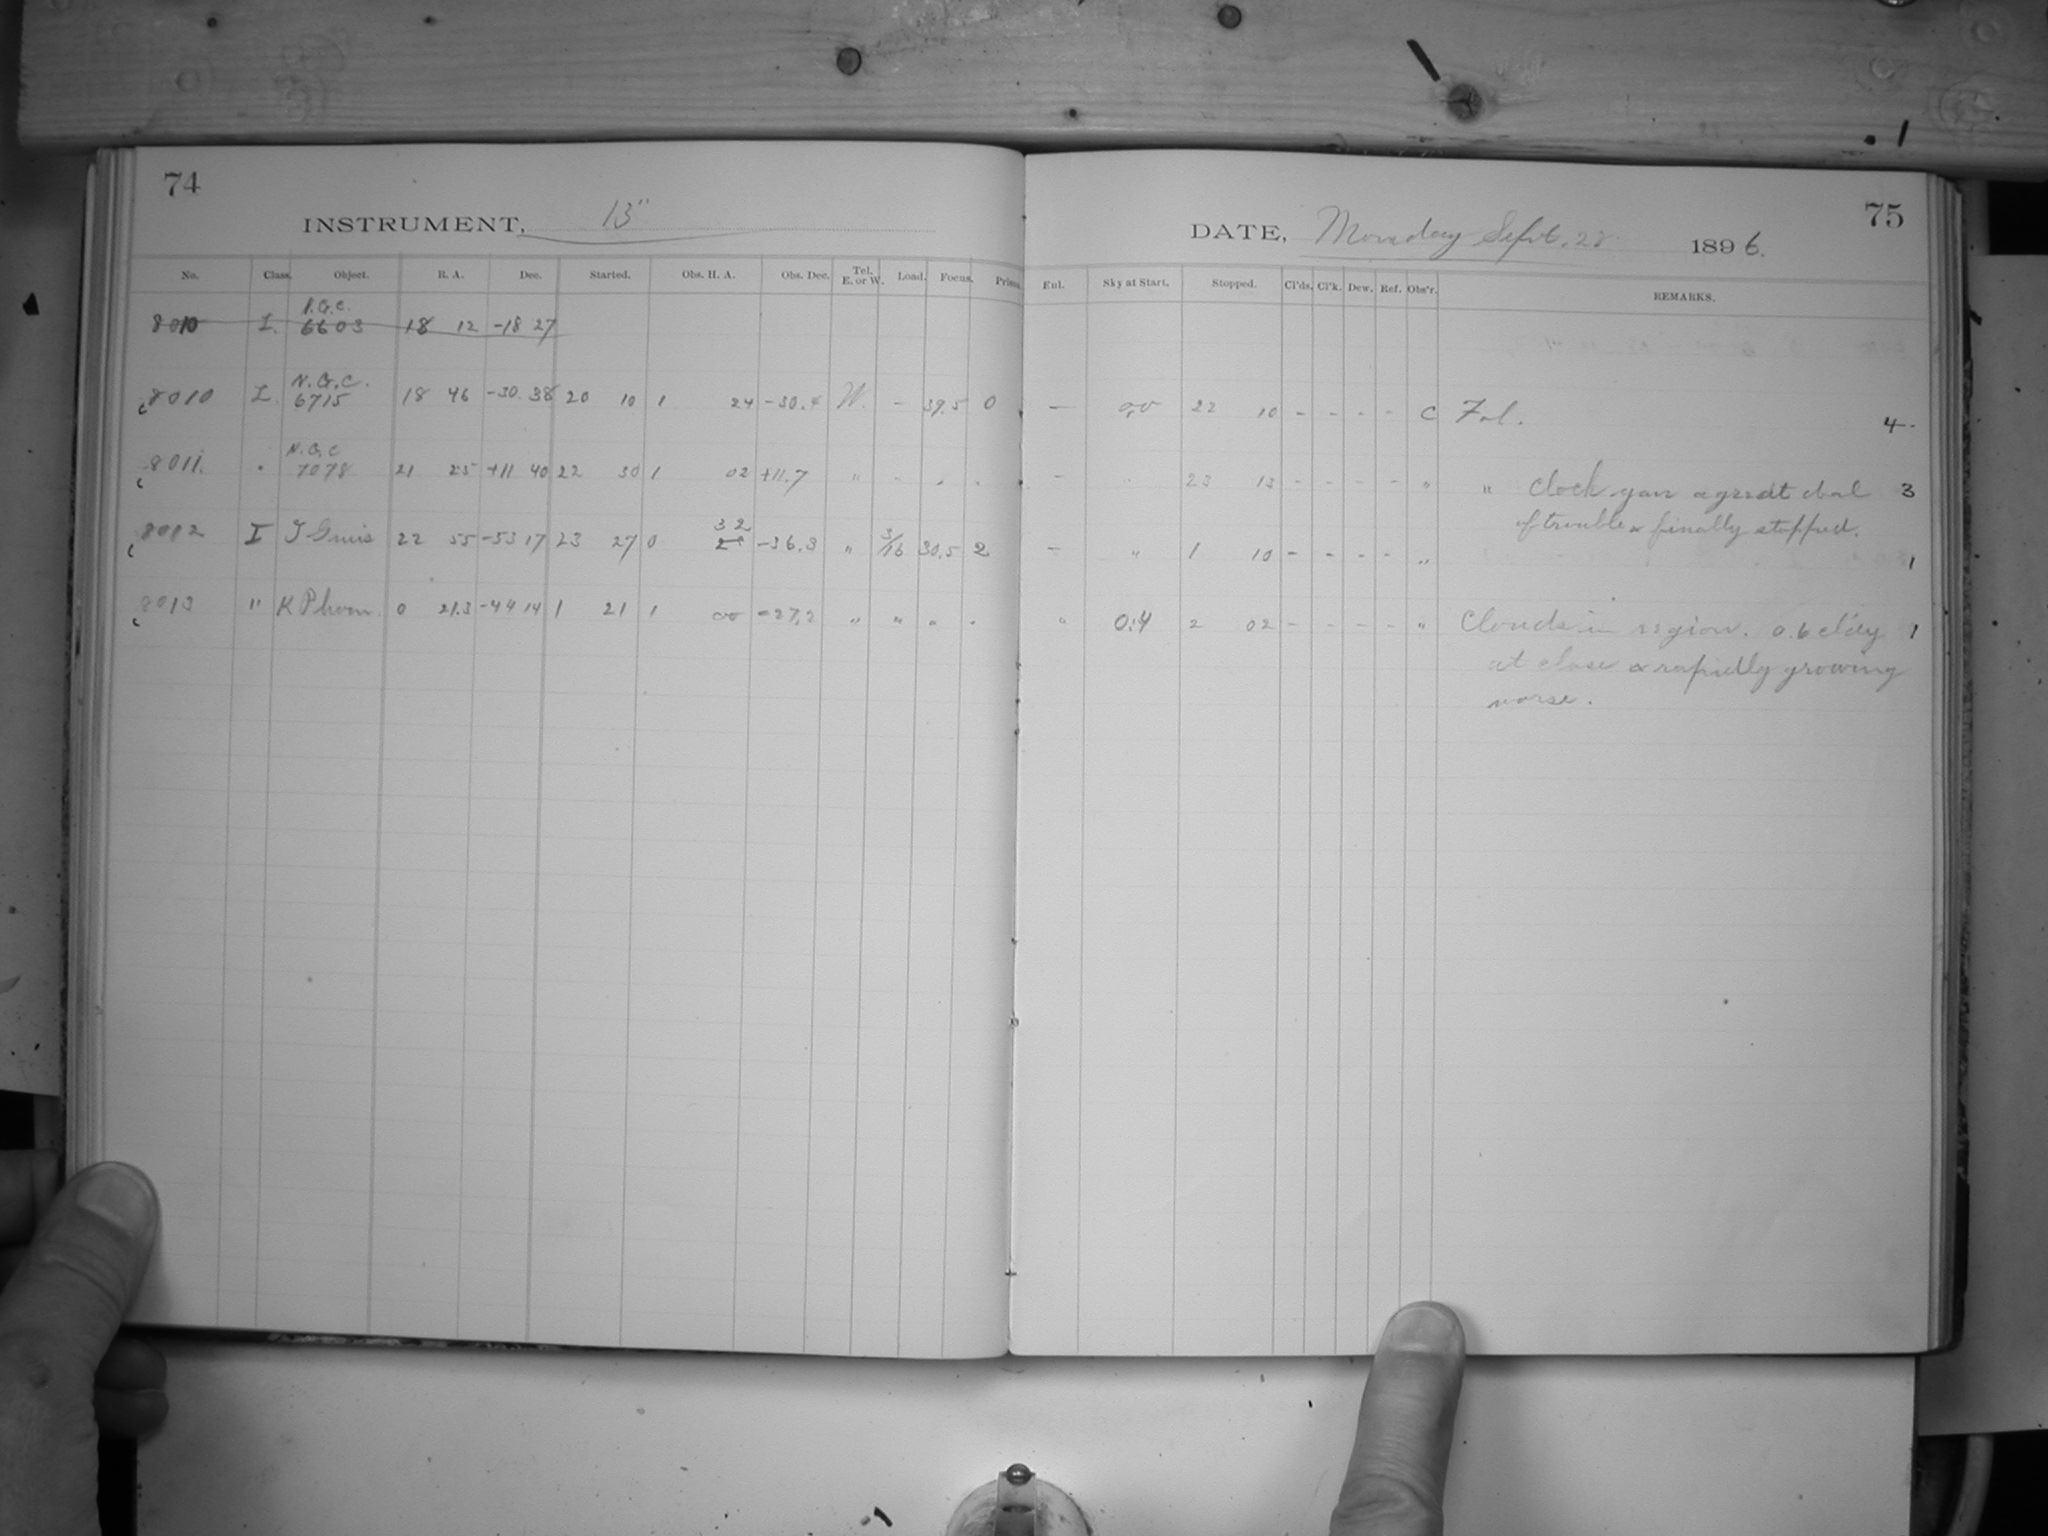 74
INSTRUMENT, 13"
No. Class. Object. R. A. Dec. Started. Obs. H. A. Obs. Dec. Tel. E. or W. Load. Focus. Prism.
N.G.C.
8010 I. 6603 18 12 -18 27
N.G.C.
8010 I. 6715 18 46 -30 38 20 10 1 24 -30.4 W. - 39.5 0
N.G.C
8011. " 7078 21 25 +11 40 22 30 1 02 +11.7 " - " "
32
8012 I Gruis 22 55 -53 17 23 27 0 -36.3 " 3/16 30.5 2
8013 " K Phoen. 0 21.3 -44 14 1 21 1 00 -27.2 " " " "
75
DATE, Monday Sept. 28 1896.
Ful. Sky at Start. Stopped. Cl'ds. Cl'k. Dew. Ref. Obs'r. REMARKS.
- 0.0 22 10 - - - - C 4-
- " 23 13 - - - - " " Clock gave a great deal 3
of trouble & finally stopped.
- " 1 10 - - - - " 1
" 0.4 2 02 - - - - " Clouds in region. 0.6 cl'dy 1
at close & rapidly growing
worse.